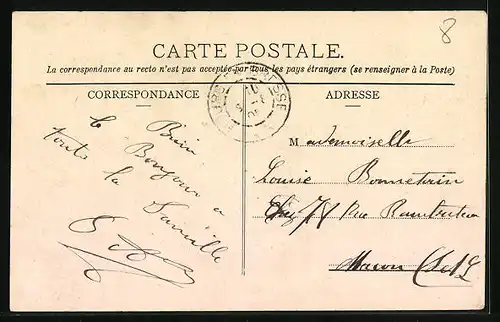 8
CARTE POSTALE.
La correspondance au recto n'est pas acceptée par tous les pays étrangers (se renseigner à la Poste)
CORRESPONDANCE
ADRESSE
Bien
le Bonjour a
toute la Famille
Mademoiselle
Louise Bonnetain
Rue Rambuteau
Macon (S & L)